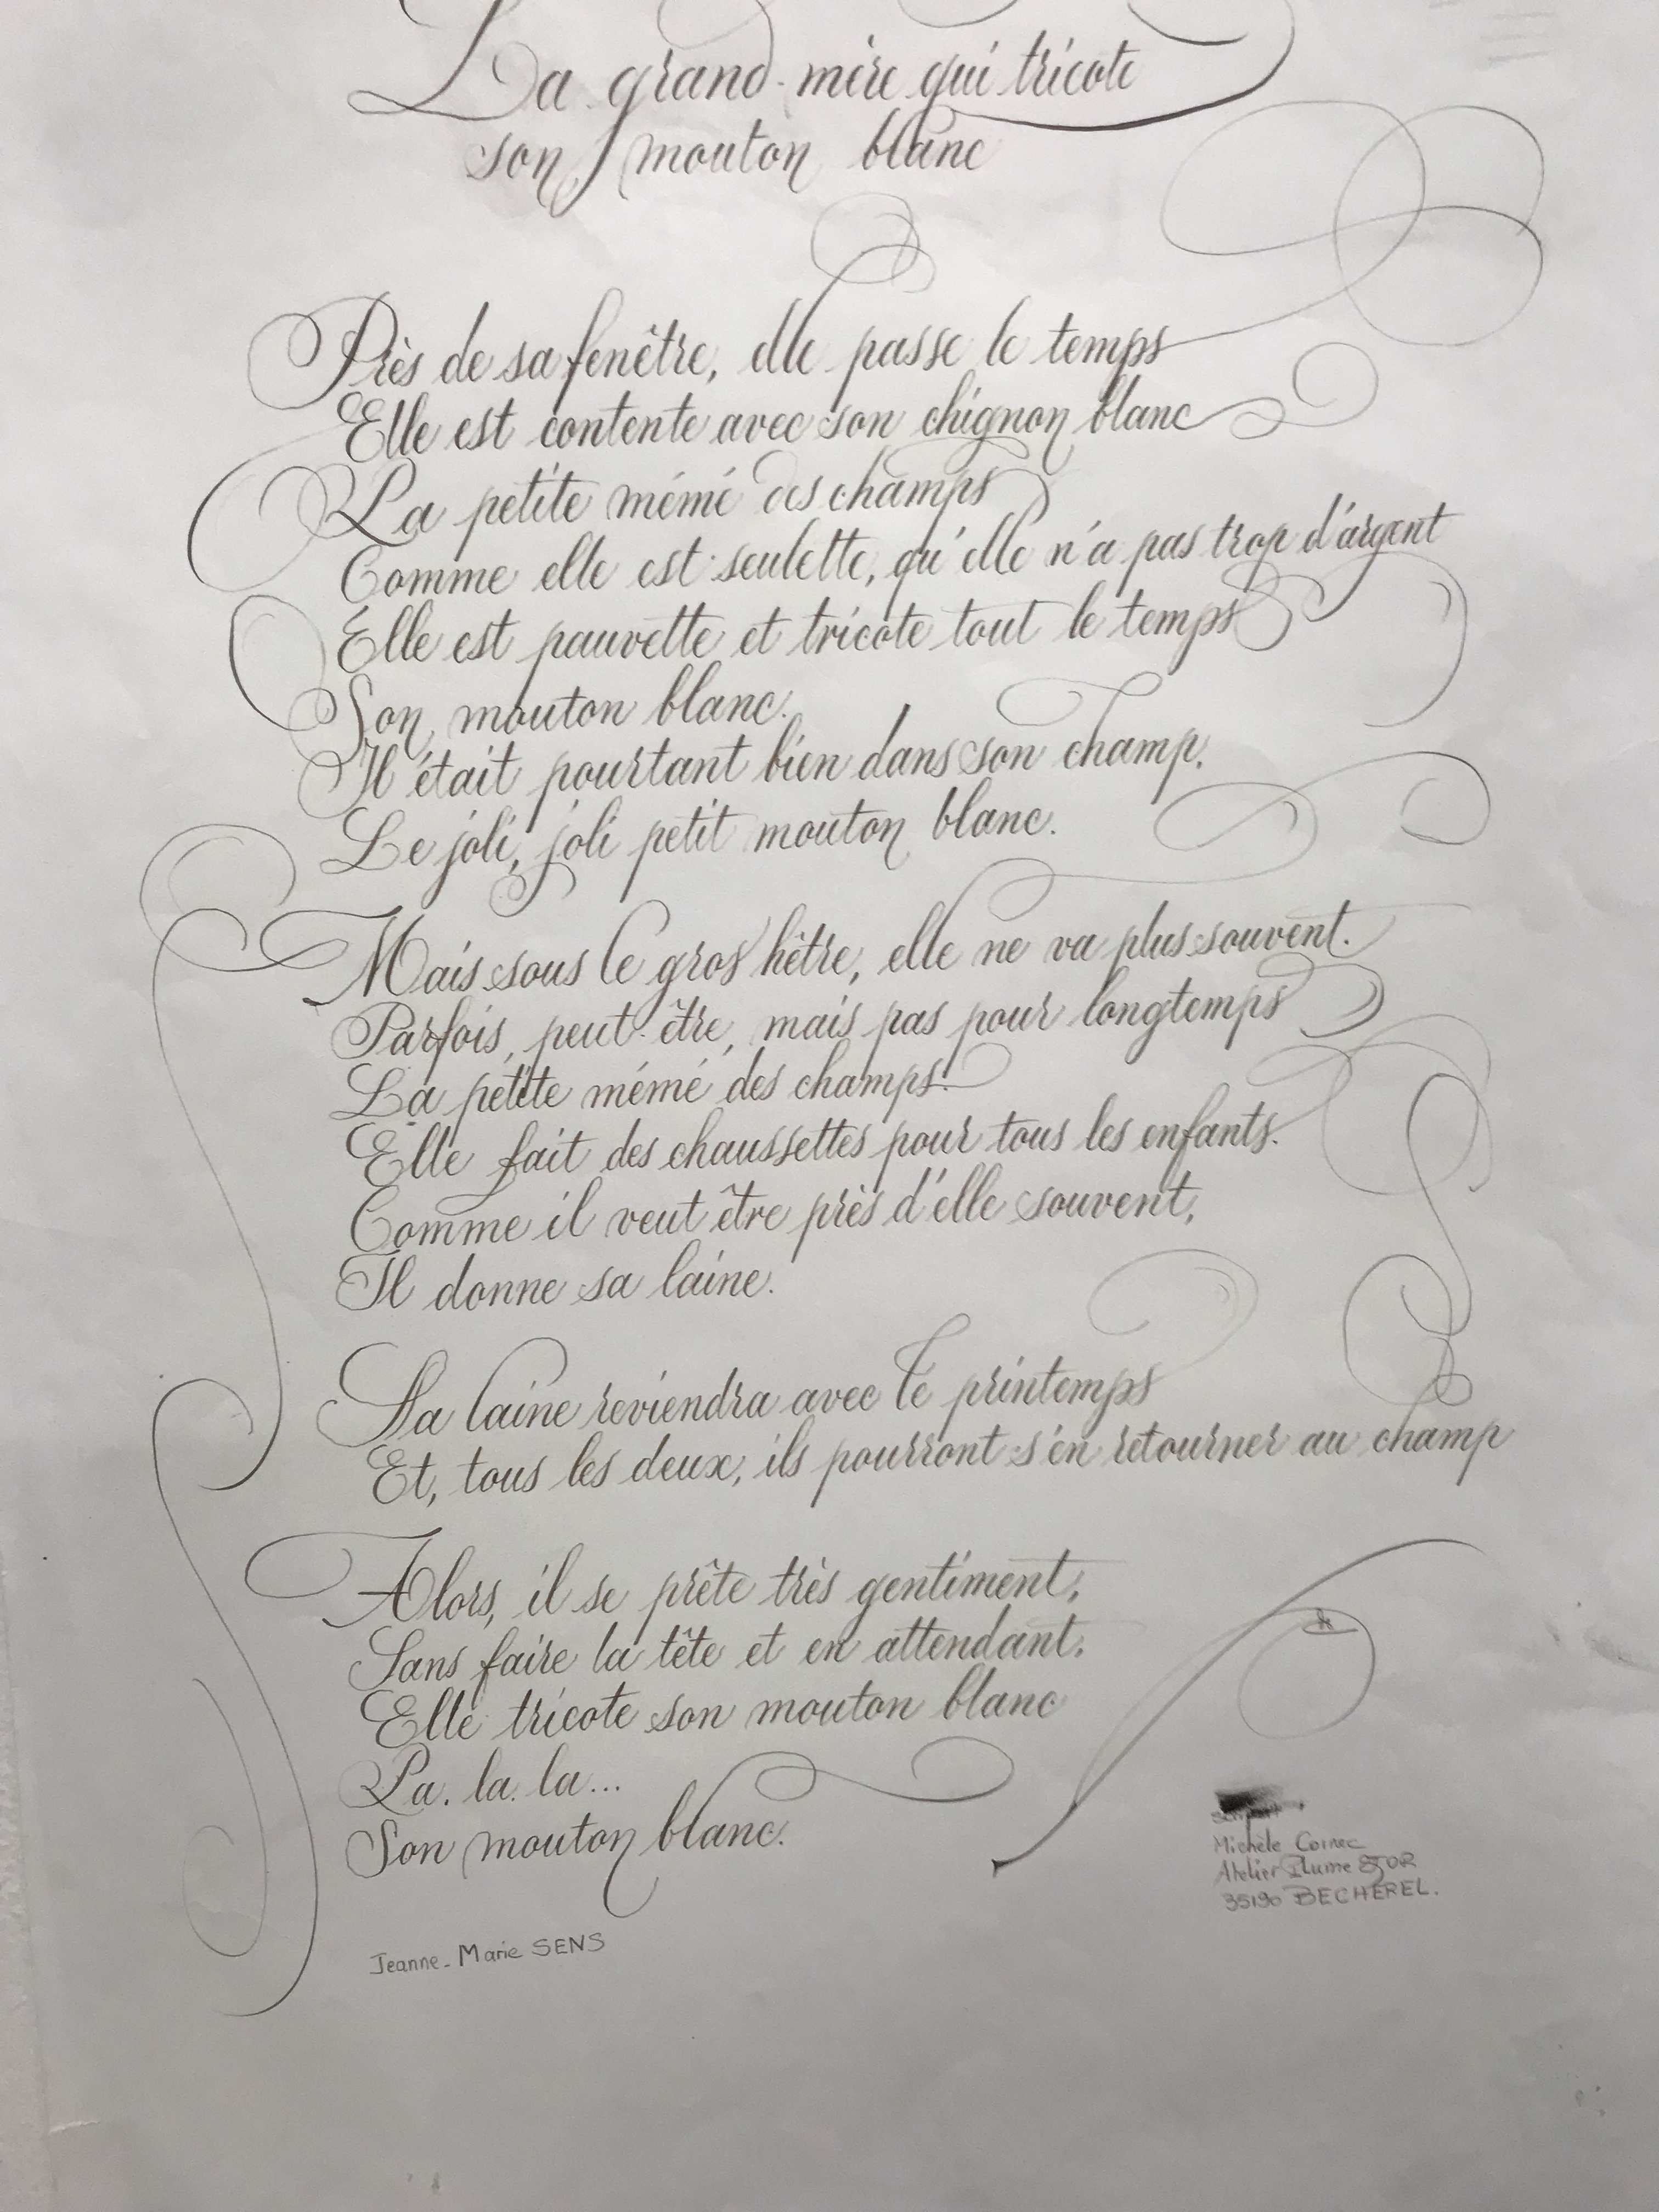 La grand-mère qui tricote
son mouton blanc
Près de sa fenêtre, elle passe le temps
Elle est contente avec son chignon blanc
La petite mémé des champs
Comme elle est seulette, qu'elle n'a pas trop d'argent
Elle est pauvette et tricote tout le temps
Son mouton blanc.
Il était pourtant bien dans son champ,
Le joli, joli petit mouton blanc.
Mais sous le gros hêtre, elle ne va plus souvent.
Parfois, peut-être, mais pas pour longtemps
La petite mémé des champs.
Elle fait des chaussettes pour tous les enfants.
Comme il veut être près d'elle souvent,
Il donne sa laine.
Sa laine reviendra avec le printemps
Et, tous les deux, ils pourront s'en retourner au champ
Alors, il se prête très gentiment,
Sans faire la tête et en attendant.
Elle tricote son mouton blanc
La. la. la...
Son mouton blanc.
Michèle Cornec
Atelier Plume & OR
35190 BECHEREL.
Jeanne-Marie SENS